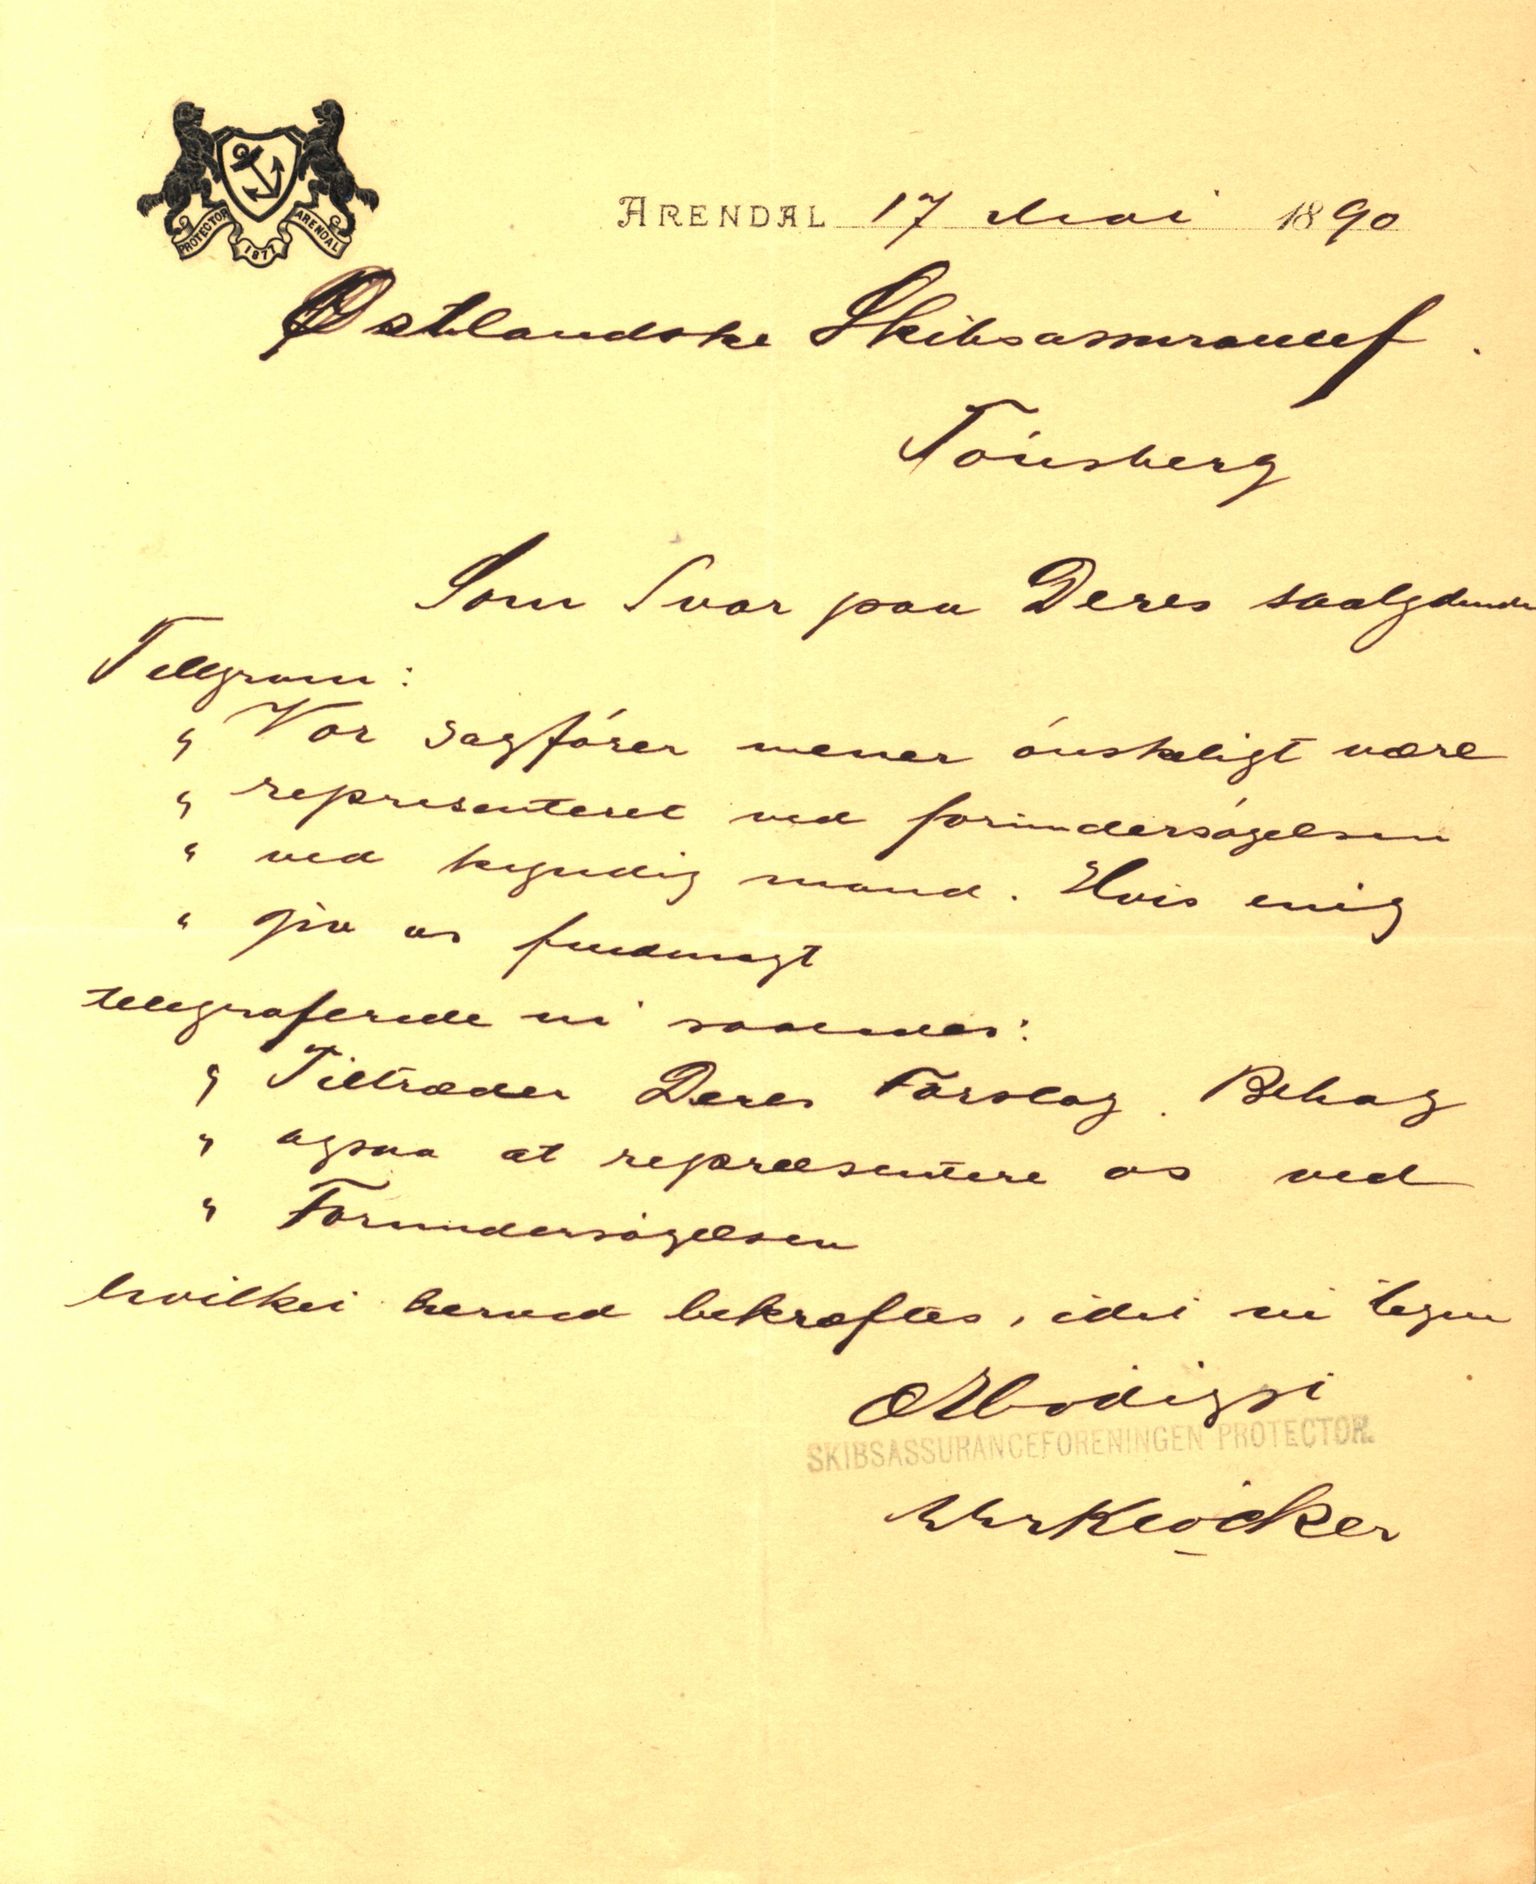 PROTECTOR 1877 ARENDAL
ARENDAL 17 Mai 1890
Østlandske Skibsassurancef.
Tönsberg
Som Svar paa Deres saalydende
Telegram:
„ Vor sagfórer mener ónskeligt være
„ repræsenteret ved forundersógelsen
" ved kyndig mand. Hvis enig
" giv os fuldmagt
telegraferede vi saaledes:
„ Tiltræder Deres Forslag. Behag
" ogsaa at repræsentere os ved
" Forundersógelsen
hvilket herved bekræftes, idet vi tegne
Ærbödigst
SKIBSASSURANCEFORENINGEN PROTECTOR.
Klöcker